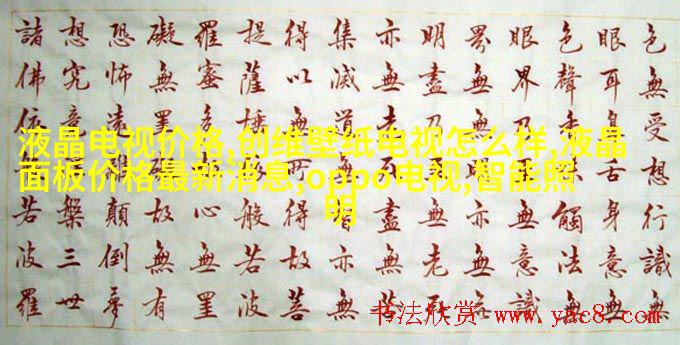 液晶电视价格,创维壁纸电视怎么样,液晶
面板价格最新消息,oppo电视,智能照
明
色無受想行識無
眼耳鼻舌身意無
色聲觸法無
眼界乃無意識
界無無亦無無
明盡乃無老死
亦無老死盡無苦
集滅道智亦無
得以無所得故菩
提薩埵般若波
羅蜜多心無罣
礙無罣故無有
恐怖遠離顛倒夢
想究竟槃三世
諸佛依若波羅
书法欣赏 www.yac8.com